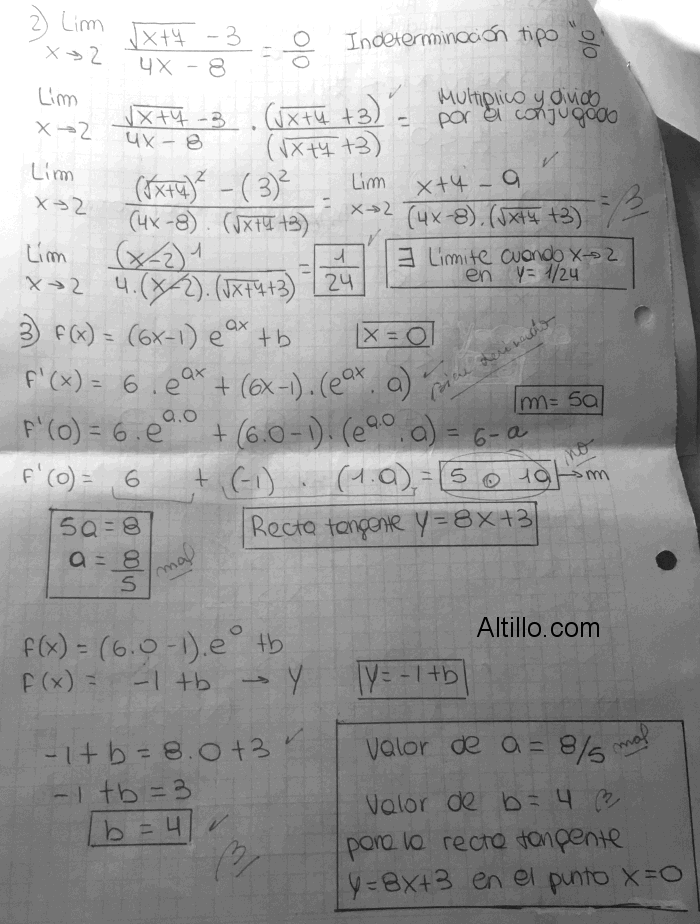 2) Lim x→2 (√(x+4) - 3)/(4x - 8) = 0/0 Indeterminación tipo "0/0"
Lim x→2 (√(x+4) - 3)/(4x - 8) · (√(x+4) + 3)/(√(x+4) + 3) = Multiplico y divido por el conjugado ✓
Lim x→2 ((√(x+4))² - (3)²)/((4x-8) · (√(x+4)+3)) = Lim x→2 (x+4 - 9)/((4x-8) · (√(x+4)+3)) = ✓
Lim x→2 (x-2) 1/(4·(x-2)·(√(x+4)+3)) = 1/24 ✓ ∃ Límite cuando x→2 en y = 1/24
3) f(x) = (6x-1) e^(ax) + b x = 0
F'(x) = 6 · e^(ax) + (6x-1) · (e^(ax) · a) ✓
m = 5a
F'(0) = 6 · e^(a·0) + (6·0-1) · (e^(a·0) · a) = 6-a
no
F'(0) = 6 + (-1) · (1·a) = 5 · 1a → m
5a = 8 Recta tangente y = 8x+3
a = 8/5 mal
Altillo.com
f(x) = (6·0-1)·e^0 + b
f(x) = -1 + b → y y = -1+b
-1 + b = 8·0 + 3 ✓
-1 + b = 3
b = 4 ✓
Valor de a = 8/5 mal
Valor de b = 4
para la recta tangente
y = 8x+3 en el punto x=0